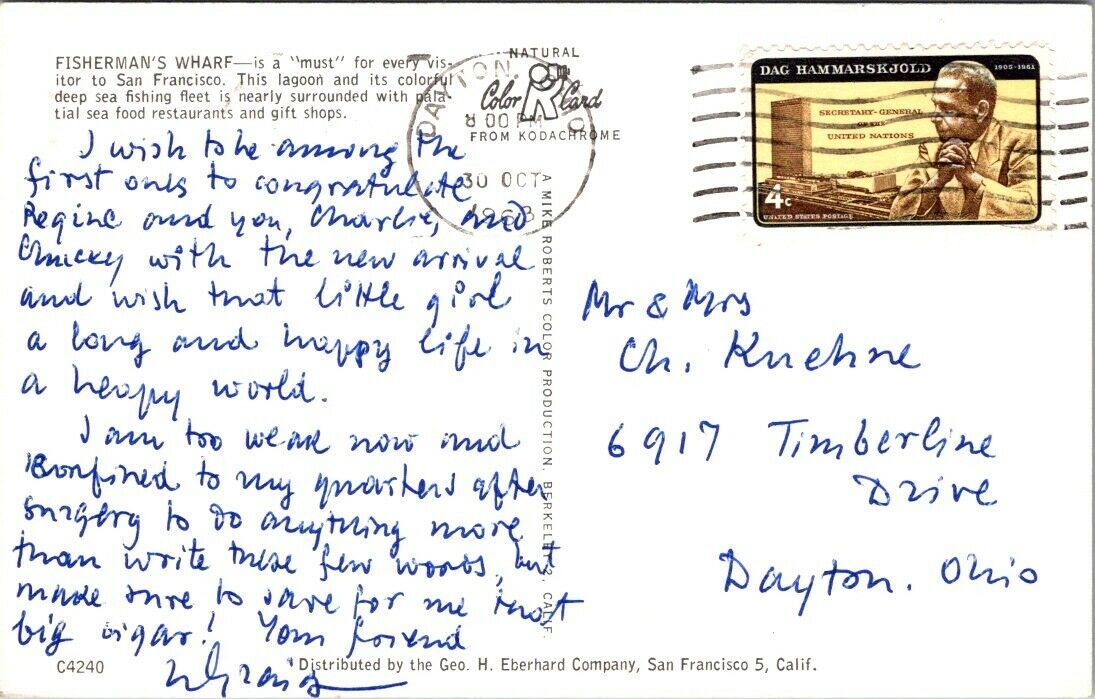 FISHERMAN'S WHARF—is a "must" for every vis-
itor to San Francisco. This lagoon and its colorful
deep sea fishing fleet is nearly surrounded with pala-
tial sea food restaurants and gift shops.
I wish to be among the
first ones to congratulate
Regine and you, Charlie, and
Chuckey with the new arrival
and wish that little girl
a long and happy life in
a happy world.
I am too weak now and
confined to my quarters after
surgery to do anything more
than write these few words, but
made sure to save for me that
big cigar! Your friend
C4240
Distributed by the Geo. H. Eberhard Company, San Francisco 5, Calif.
NATURAL
Color R Card
FROM KODACHROME
A MIKE ROBERTS COLOR PRODUCTION, BERKELEY 2, CALIF.
DAYTON, O
8 00 PM
30 OCT
1963
DAG HAMMARSKJOLD 1905-1961
SECRETARY-GENERAL
OF THE
UNITED NATIONS
4c
UNITED STATES POSTAGE
Mr & Mrs
Ch. Kuehne
6917 Timberline
Drive
Dayton. Ohio